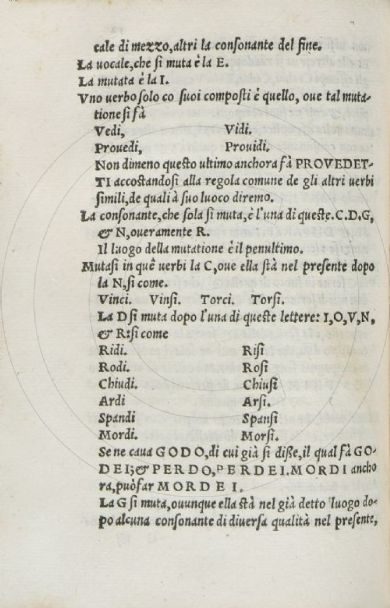 cale di mezzo, altri la consonante del fine.
La uocale, che si muta è la E.
La mutata è la I.
Vno uerbo solo co suoi composti è quello, oue tal muta-
tione si fà
Vedi, Vidi.
Prouedi, Prouidi.
Non dimeno questo ultimo anchora fà PROVEDET-
TI accostandosi alla regola comune de gli altri uerbi
simili, de quali à suo luoco diremo.
La consonante, che sola si muta, è l'una di queste. C. D, G,
& N, oueramente R.
Il luogo della mutatione è il penultimo.
Mutasi in quẽ uerbi la C, oue ella stà nel presente dopo
la N, si come.
Vinci. Vinsi. Torci. Torsi.
La D si muta dopo l'una di queste lettere: I, O, V, N,
& R: si come
Ridi. Risi
Rodi. Rosi
Chiudi. Chiusi
Ardi Arsi.
Spandi Spansi
Mordi. Morsi.
Se ne caua GODO, di cui già si disse, il qual fà GO-
DEI; & PERDO, PERDEI. MORDI ancho
ra, può far MORDEI.
La G si muta, ouunque ella stà nel già detto luogo do-
po alcuna consonante di diuersa qualità nel presente,